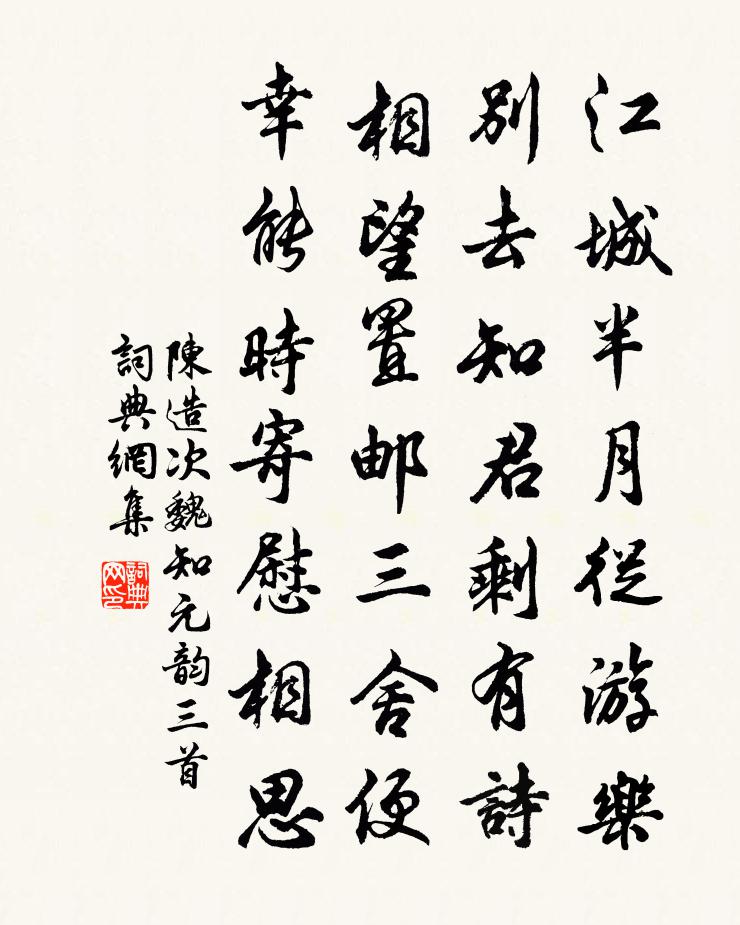 江城半月從游樂
別去知君剩有詩
相望置邮三舍便
幸能時寄慰相思
陳造次魏知元韵三首
詞典網集
詞典网印